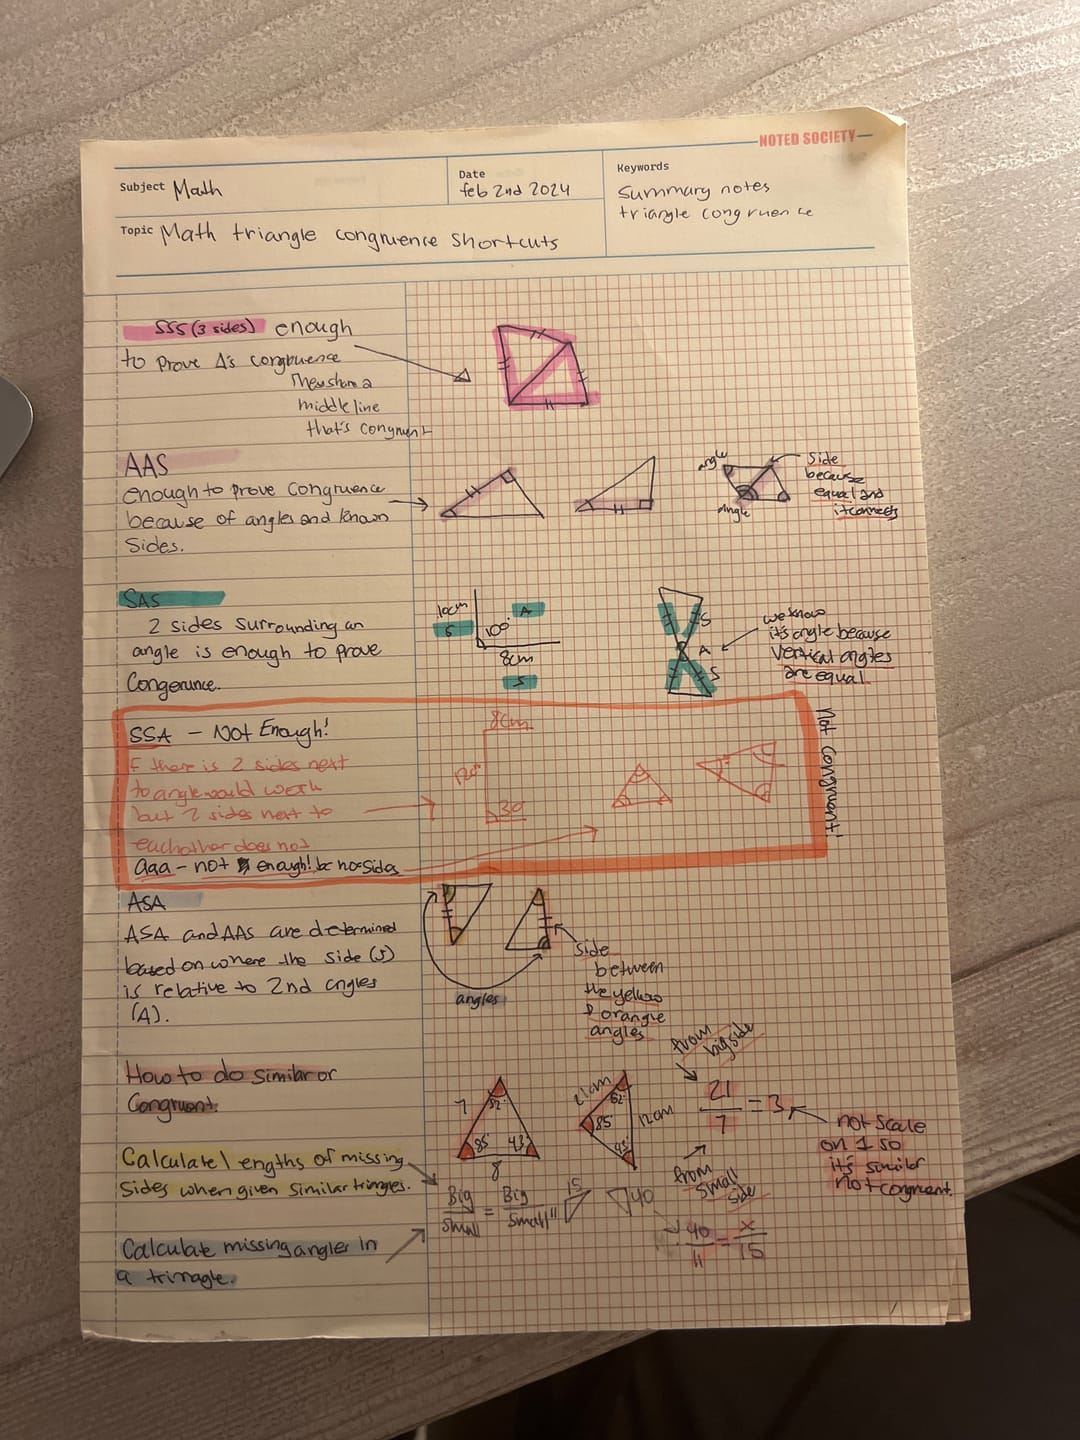 NOTED SOCIETY
Subject Math
Date
feb 2nd 2024
Keywords
Summary notes
triangle congruence
Topic Math triangle congruence shortcuts
SSS (3 sides) enough
to prove Δ's congruence
They share a
middle line
that's congruent
AAS
enough to prove congruence
because of angles and known
Sides.
angle
angle
Side
because
equal and
it connects
SAS
2 sides surrounding an
angle is enough to prove
Congerunce.
10cm
S
A
100°
8cm
S
S
A
S
we know
it's angle because
vertical angles
are equal
SSA - Not Enough!
if there is 2 sides next
to angle would work
but 2 sides next to
eachother does not
aaa - not enough! bc no sides
8cm
30
Not Congruent!
ASA
ASA and AAS are determined
based on where the side (S)
is relative to 2nd angles
(A).
angles
Side
between
the yellow
& orange
angles
How to do similar or
Congruent.
7
52°
85
43
8
21cm
52°
85
12cm
from
big side
21/7 = 3
from
small
side
not scale
on 1 so
it's similar
not congruent.
Calculate lengths of missing
Sides when given similar triangles.
Big/Small = Big/Small
11
15
40
40/11 = x/15
Calculate missing angles in
a trinagle.